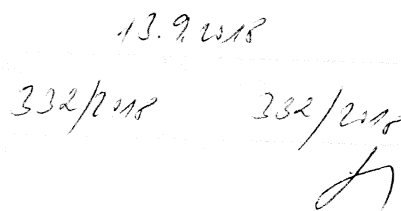 13.9.2018
332/2018 332/2018